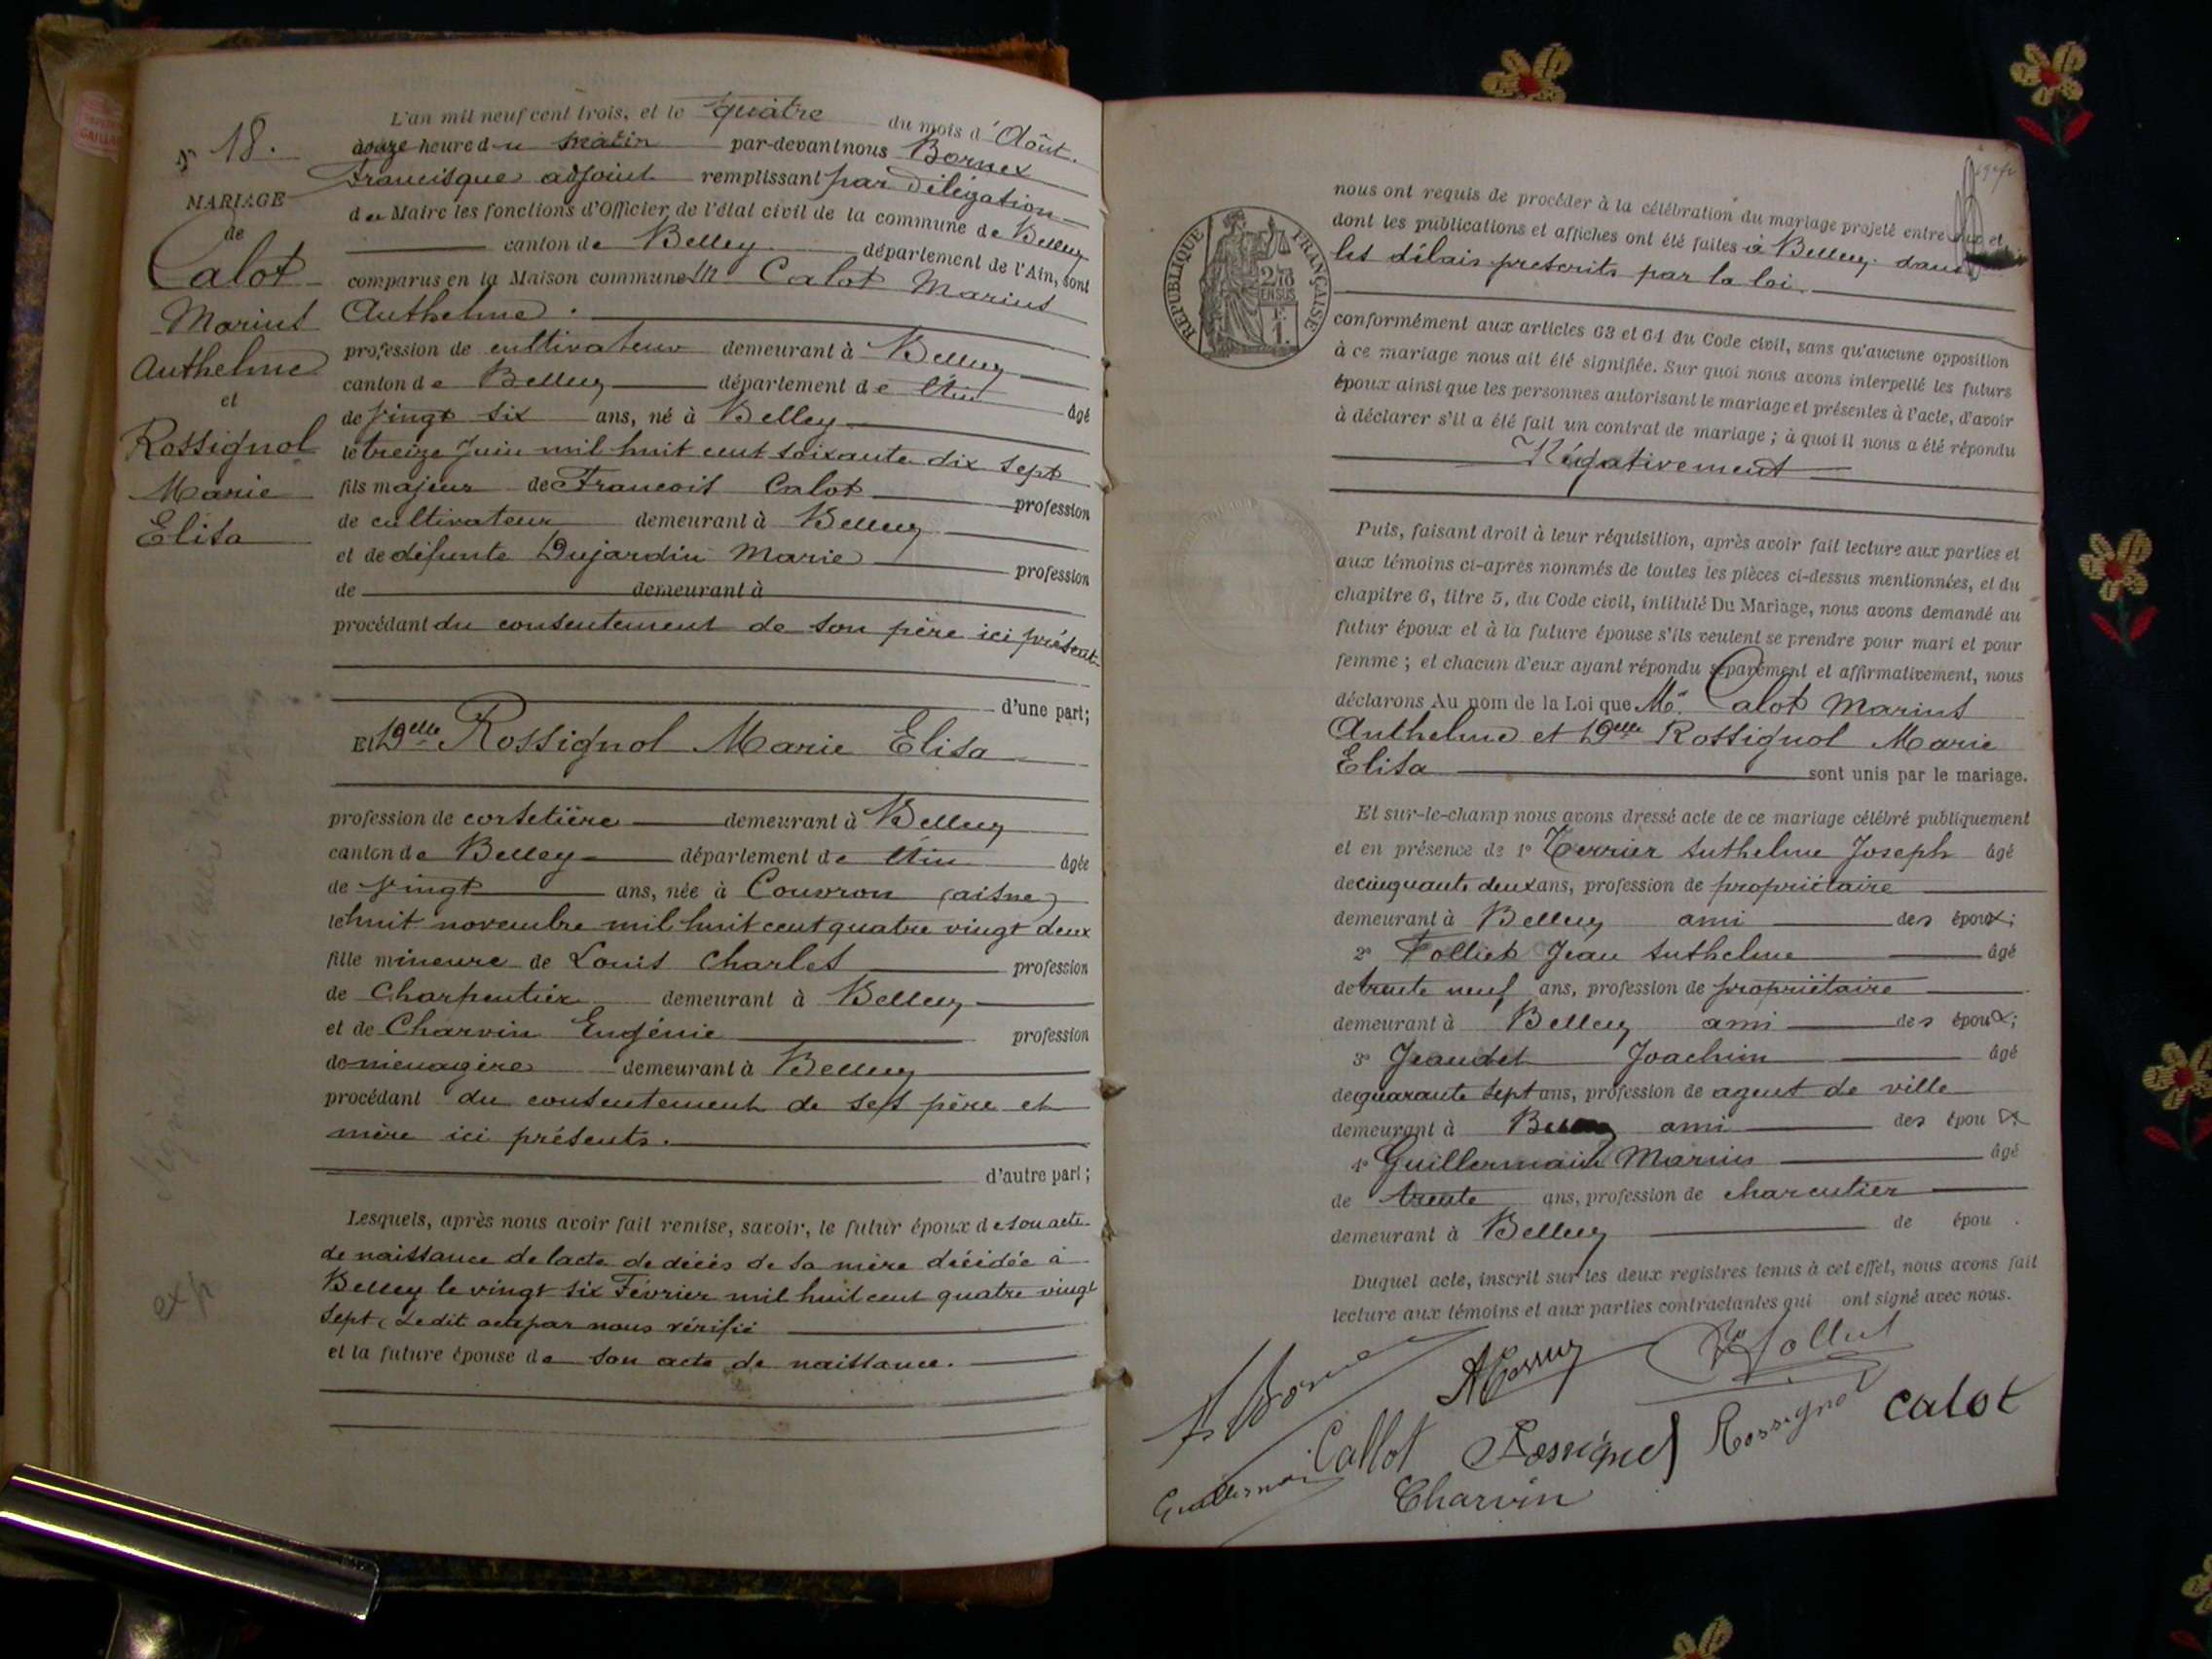 N° 18.
MARIAGE
de
Calot
Marius
Anthelme
et
Rossignol
Marie
Elisa
exp
L'an mil neuf cent trois, et le quatre du mois d'Août.
à onze heure du matin par-devant nous Bornex
Francisque adjoint remplissant par délégation
du Maire les fonctions d'Officier de l'état civil de la commune de Belley
canton de Belley département de l'Ain, sont
comparus en la Maison commune Mr Calot Marius
Anthelme.
profession de cultivateur demeurant à Belley
canton de Belley département de l'Ain âgé
de vingt six ans, né à Belley
le treize Juin mil huit cent soixante dix sept
fils majeur de Francois Calot profession
de cultivateur demeurant à Belley
et de défunte Dujardin Marie profession
de demeurant à
procédant du consentement de son père ici présent
d'une part;
Et Delle Rossignol Marie Elisa
profession de corsetière demeurant à Belley
canton de Belley département de l'Ain âgée
de vingt ans, née à Couvron (aisne)
le huit novembre mil huit cent quatre vingt deux
fille mineure de Louis Charles profession
de Charpentier demeurant à Belley
et de Charvin Eugénie profession
de ménagère demeurant à Belley
procédant du consentement de ses père et
mère ici présents.
d'autre part;
Lesquels, après nous avoir fait remise, savoir, le futur époux de son acte
de naissance de lacte de décès de sa mère décédée à
Belley le vingt six Février mil huit cent quatre vingt
sept, Ledit acte par nous vérifié
et la future épouse de son acte de naissance.
RÉPUBLIQUE FRANÇAISE
2/10
EN SUS
F.
1.
nous ont requis de procéder à la célébration du mariage projeté entre eux et
dont les publications et affiches ont été faites à Belley dans
les délais prescrits par la loi.
conformément aux articles 63 et 64 du Code civil, sans qu'aucune opposition
à ce mariage nous ait été signifiée. Sur quoi nous avons interpellé les futurs
époux ainsi que les personnes autorisant le mariage et présentes à l'acte, d'avoir
à déclarer s'il a été fait un contrat de mariage; à quoi il nous a été répondu
Négativement
Puis, faisant droit à leur réquisition, après avoir fait lecture aux parties et
aux témoins ci-après nommés de toutes les pièces ci-dessus mentionnées, et du
chapitre 6, titre 5, du Code civil, intitulé Du Mariage, nous avons demandé au
futur époux et à la future épouse s'ils veulent se prendre pour mari et pour
femme; et chacun d'eux ayant répondu séparément et affirmativement, nous
déclarons Au nom de la Loi que Mr. Calot Marius
Anthelme et Delle Rossignol Marie
Elisa sont unis par le mariage.
Et sur-le-champ nous avons dressé acte de ce mariage célébré publiquement
et en présence de 1° Terrier Anthelme Joseph âgé
de cinquante deux ans, profession de propriétaire
demeurant à Belley ami des époux;
2° Folliet Jean Anthelme âgé
de trente neuf ans, profession de propriétaire
demeurant à Belley ami des époux;
3° Jeandet Joachim âgé
de quarante sept ans, profession de agent de ville
demeurant à Belley ami des époux
4° Guillermain Marius âgé
de trente ans, profession de charcutier
demeurant à Belley de épou .
Duquel acte, inscrit sur les deux registres tenus à cet effet, nous avons fait
lecture aux témoins et aux parties contractantes qui ont signé avec nous.
Callot Rossignol Rossignol Calot
Guillermain Charvin